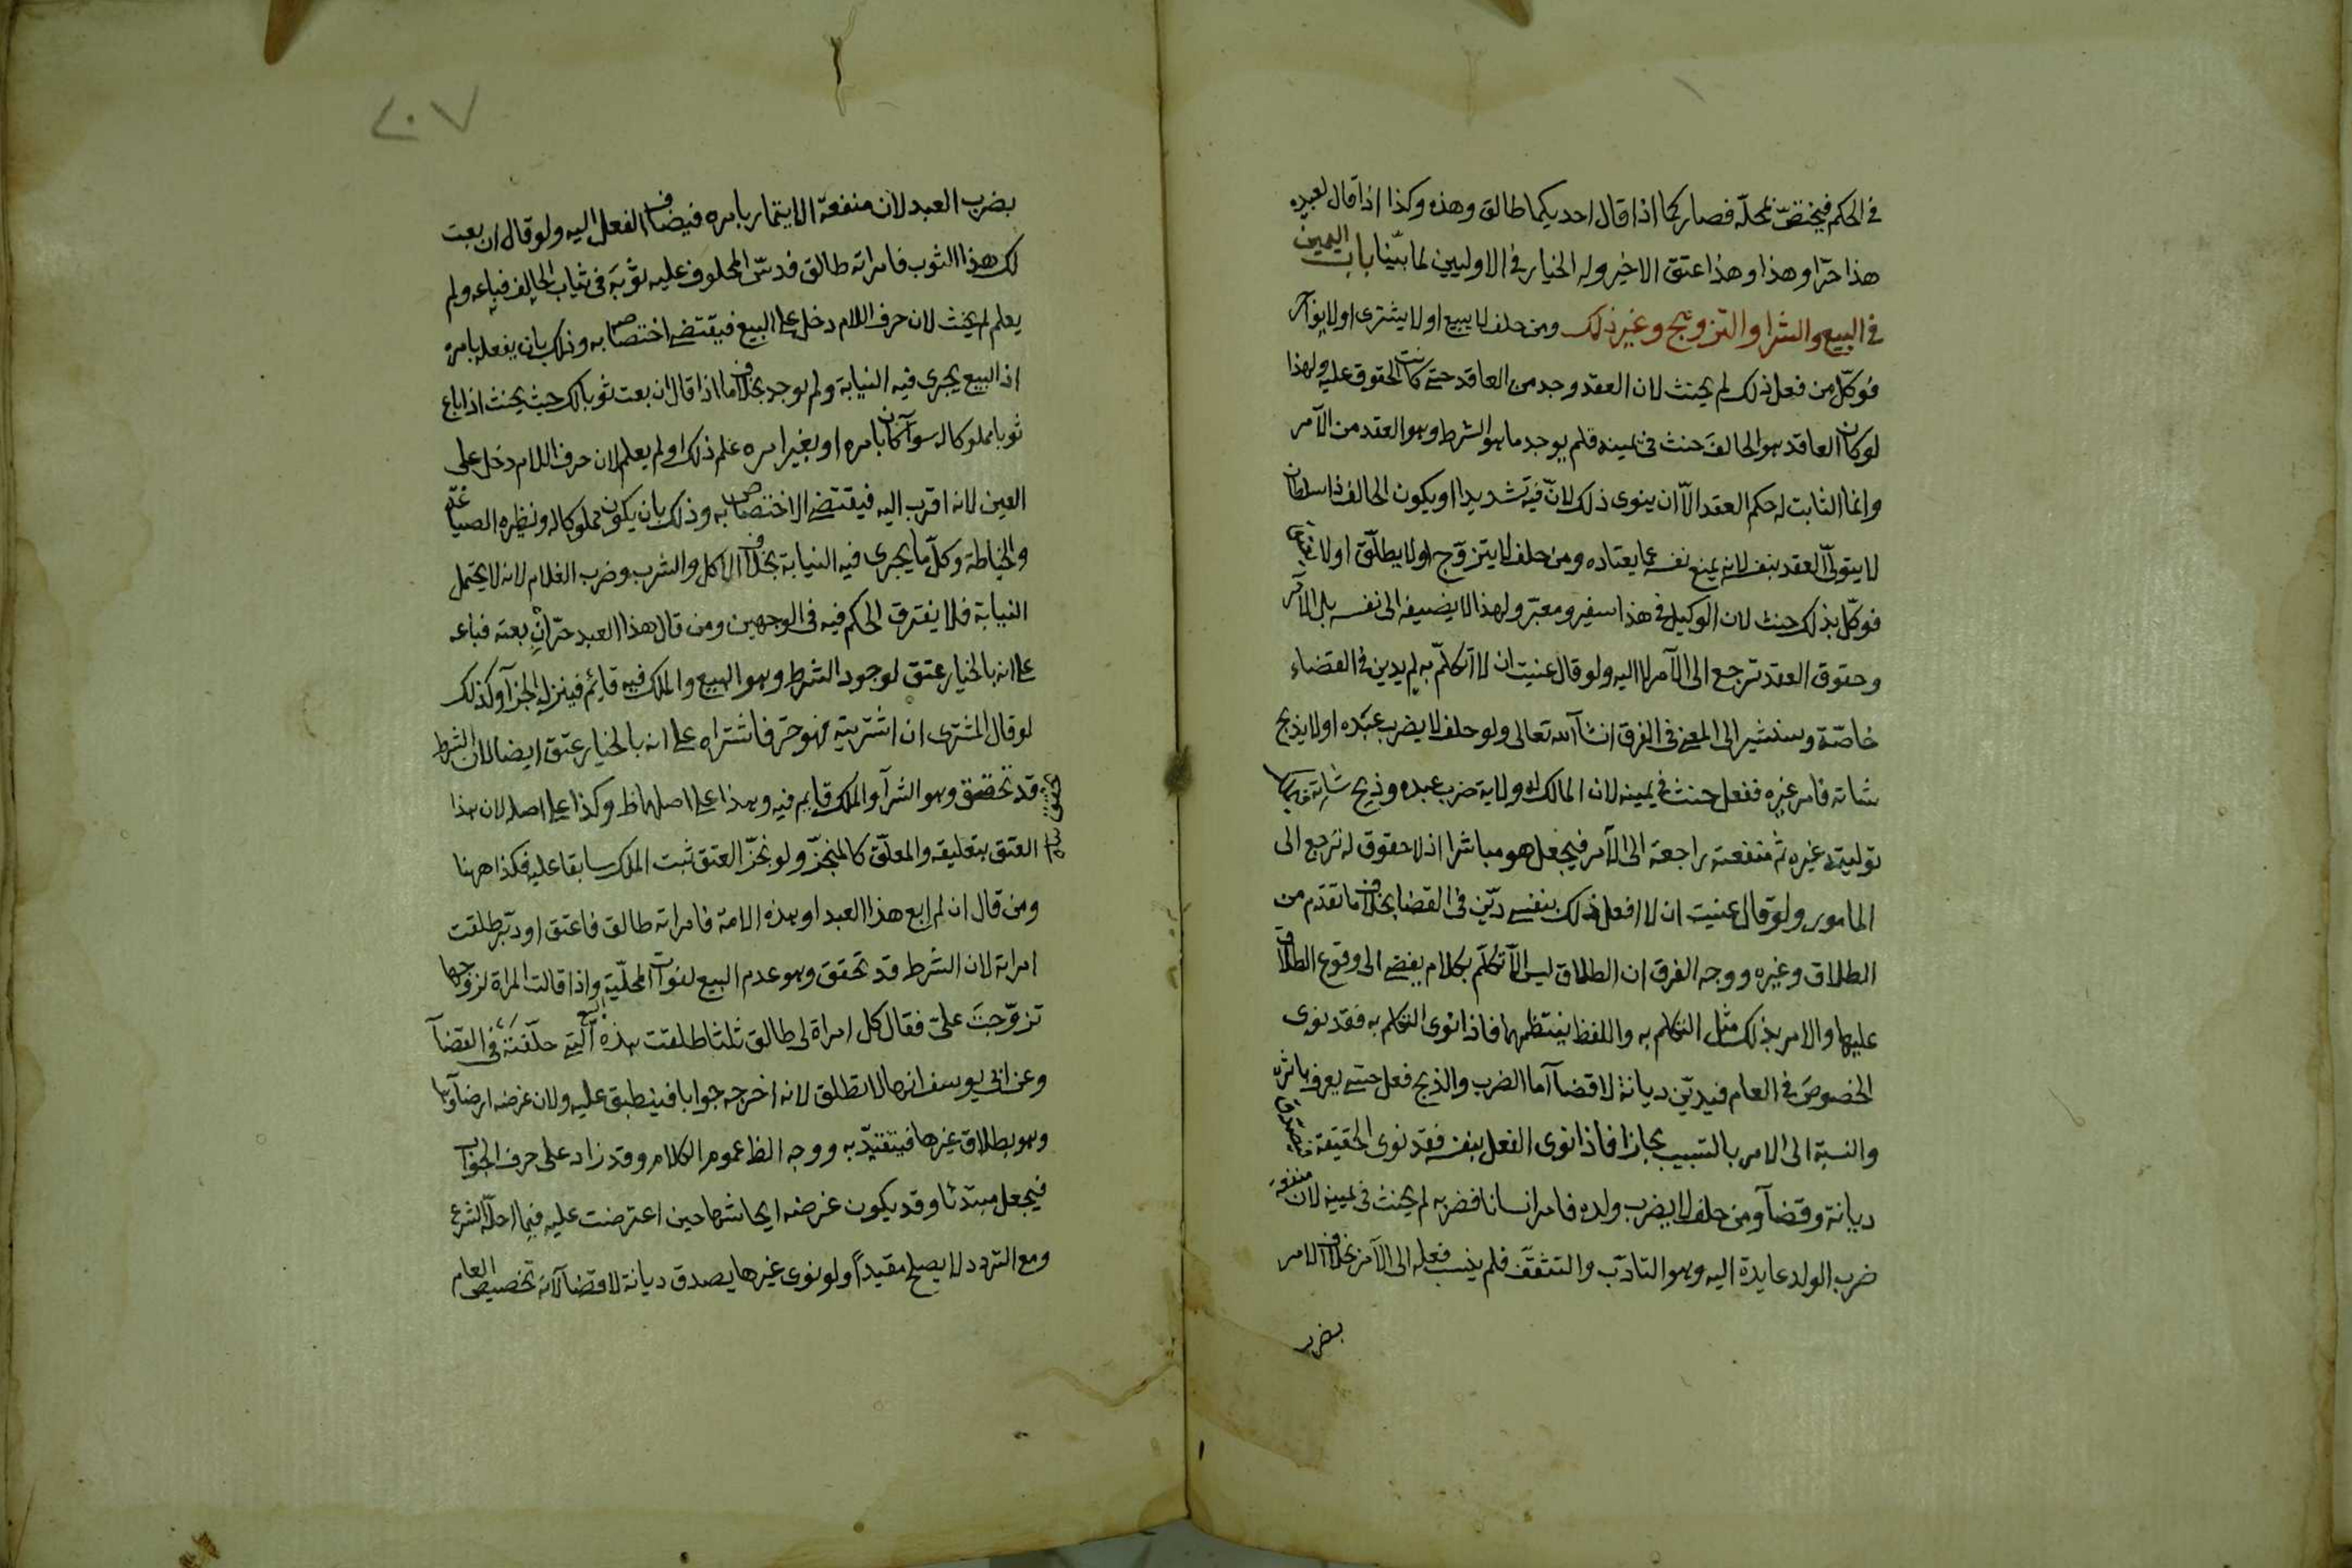 في الحكم فيختصّ بمحلّه فصار كما اذا قال احديكما طالق وهذه وكذا اذا قال لعبيده
هذا حرّ او هذا وهذا عتق الاخير وله الخيار في الاوليين لما بيّنا باب اليمين
في البيع والشرا والتزويج وغير ذلك ومن حلف لا يبيع او لا يشترى او لا يواجر
فوكّل من فعل ذلك لم يحنث لان العقد وجد من العاقد حتى كانت الحقوق عليه ولهذا
لو كان العاقد هو الحالف حنث فى يمينه فلم يوجد ما هو الشرط وهو العقد من الآمر
وانما الثابت له حكم العقد الّا ان ينوى ذلك لانّ فيه تشديدا او يكون الحالف ذا سلطان
لا يتولّى العقد بنفسه لانه يمنع نفسه عما يعتاده ومن حلف لا يتزوّج او لا يطلّق او لا يعتق
فوكّل بذلك حنث لان الوكيل فى هذا سفير ومعبّر ولهذا لا يضيفه الى نفسه بل الى الآمر
وحقوق العقد ترجع الى الآمر لا اليه ولو قال عنيت ان لا اتكلّم به لم يدين فى القضاء
خاصّة وسنشير الى المعنى فى الفرق ان شاء الله تعالى ولو حلف لا يضرب عبده او لا يذبح
شاته فامر غيره ففعل حنث فى يمينه لان المالك له ولاية ضرب عبده وذبح شاته فيملك
توليته غيره ثم منفعته راجعة الى الآمر فيجعل هو مباشرا اذ لا حقوق له ترجع الى
المامور ولو قال عنيت ان لا افعل ذلك بنفسى ديّن فى القضا بخلاف ما تقدم من
الطلاق وغيره ووجه الفرق ان الطلاق ليس الّا تكلّم بكلام يفضى الى وقوع الطلاق
عليها والامر بذلك مثل التكلم به واللفظ ينتظمهما فاذا نوى التكلم به فقد نوى
الخصوص فى العام فيديّن ديانة لا قضآ اما الضرب والذبح فعل حسىّ يعرف باثره
والنسبة الى الامر بالتسبيب مجازا فاذا نوى الفعل بنفسه فقد نوى الحقيقة فيصدق
ديانة وقضآ ومن حلف لا يضرب ولده فامر انسانا فضربه لم يحنث فى يمينه لان منفعة
ضرب الولد عايدة اليه وهو التادّب والتثقّف فلم ينسب فعله الى الآمر بخلاف الامر
بضرب
٢٠٧
بضرب العبد لان منفعة الايتمار بامره فيضاف الفعل اليه ولو قال ان بعت
لك هذا الثوب فامراته طالق فدسّ المحلوف عليه ثوبه فى ثياب الحالف فباعه ولم
يعلم لم يحنث لان حرف اللام دخل على البيع فيقتضى اختصاصه به وذلك بان يفعله بامره
اذ البيع يجرى فيه النيابة ولم يوجد بخلاف ما اذا قال ان بعت ثوبا لك حيث يحنث اذا باع
ثوبا مملوكا له سوآ كان بامره او بغير امره علم ذلك او لم يعلم لان حرف اللام دخل على
العين لانه اقرب اليه فيقتضى الاختصاص به وذلك بان يكون مملوكا له ونظيره الصياغة
والخياطة وكلّ ما يجرى فيه النيابة بخلاف الاكل والشرب وضرب الغلام لانه لا يحتمل
النيابة فلا يفترق الحكم فيه فى الوجهين ومن قال هذا العبد حرّ ان بعته فباعه
على انه بالخيار عتق لوجود الشرط وهو البيع والملك فيه قائم فينزل الجزآ وكذلك
لو قال المشترى ان اشتريته فهو حر فاشتراه على انه بالخيار عتق ايضا لان الشرط
قد تحقق وهو الشرآ والملك قايم فيه وهذا على اصلهما ظ وكذا على اصله لان هذا
العتق بتعليقه والمعلّق كالمنجزّ ولو نجزّ العتق ثبت الملك سابقا عليه فكذا ههنا
ومن قال ان لم ابع هذا العبد او هذه الامة فامراته طالق فاعتق او دبّر طلقت
امراته لان الشرط قد تحقق وهو عدم البيع لفوات المحلّية واذا قالت المراة لزوجها
تزوّجت علىّ فقال كل امراة لى طالق ثلثا طلقت هذه التى حلّفته فى القضآ
وعن ابى يوسف انها لا تطلق لانه اخرجه جوابا فينطبق عليه ولان غرضه ارضآوها
وهو بطلاق غيرها فيتقيّد به ووجه الظ عموم الكلام وقد زاد على حرف الجواب
فيجعل مبتدئا وقد يكون غرضه ايحاشها حين اعترضت عليه فيما احلّه الشرع
ومع التردد لا يصلح مقيداً ولو نوى غيرها يصدق ديانة لا قضآ لانه تخصيص العام